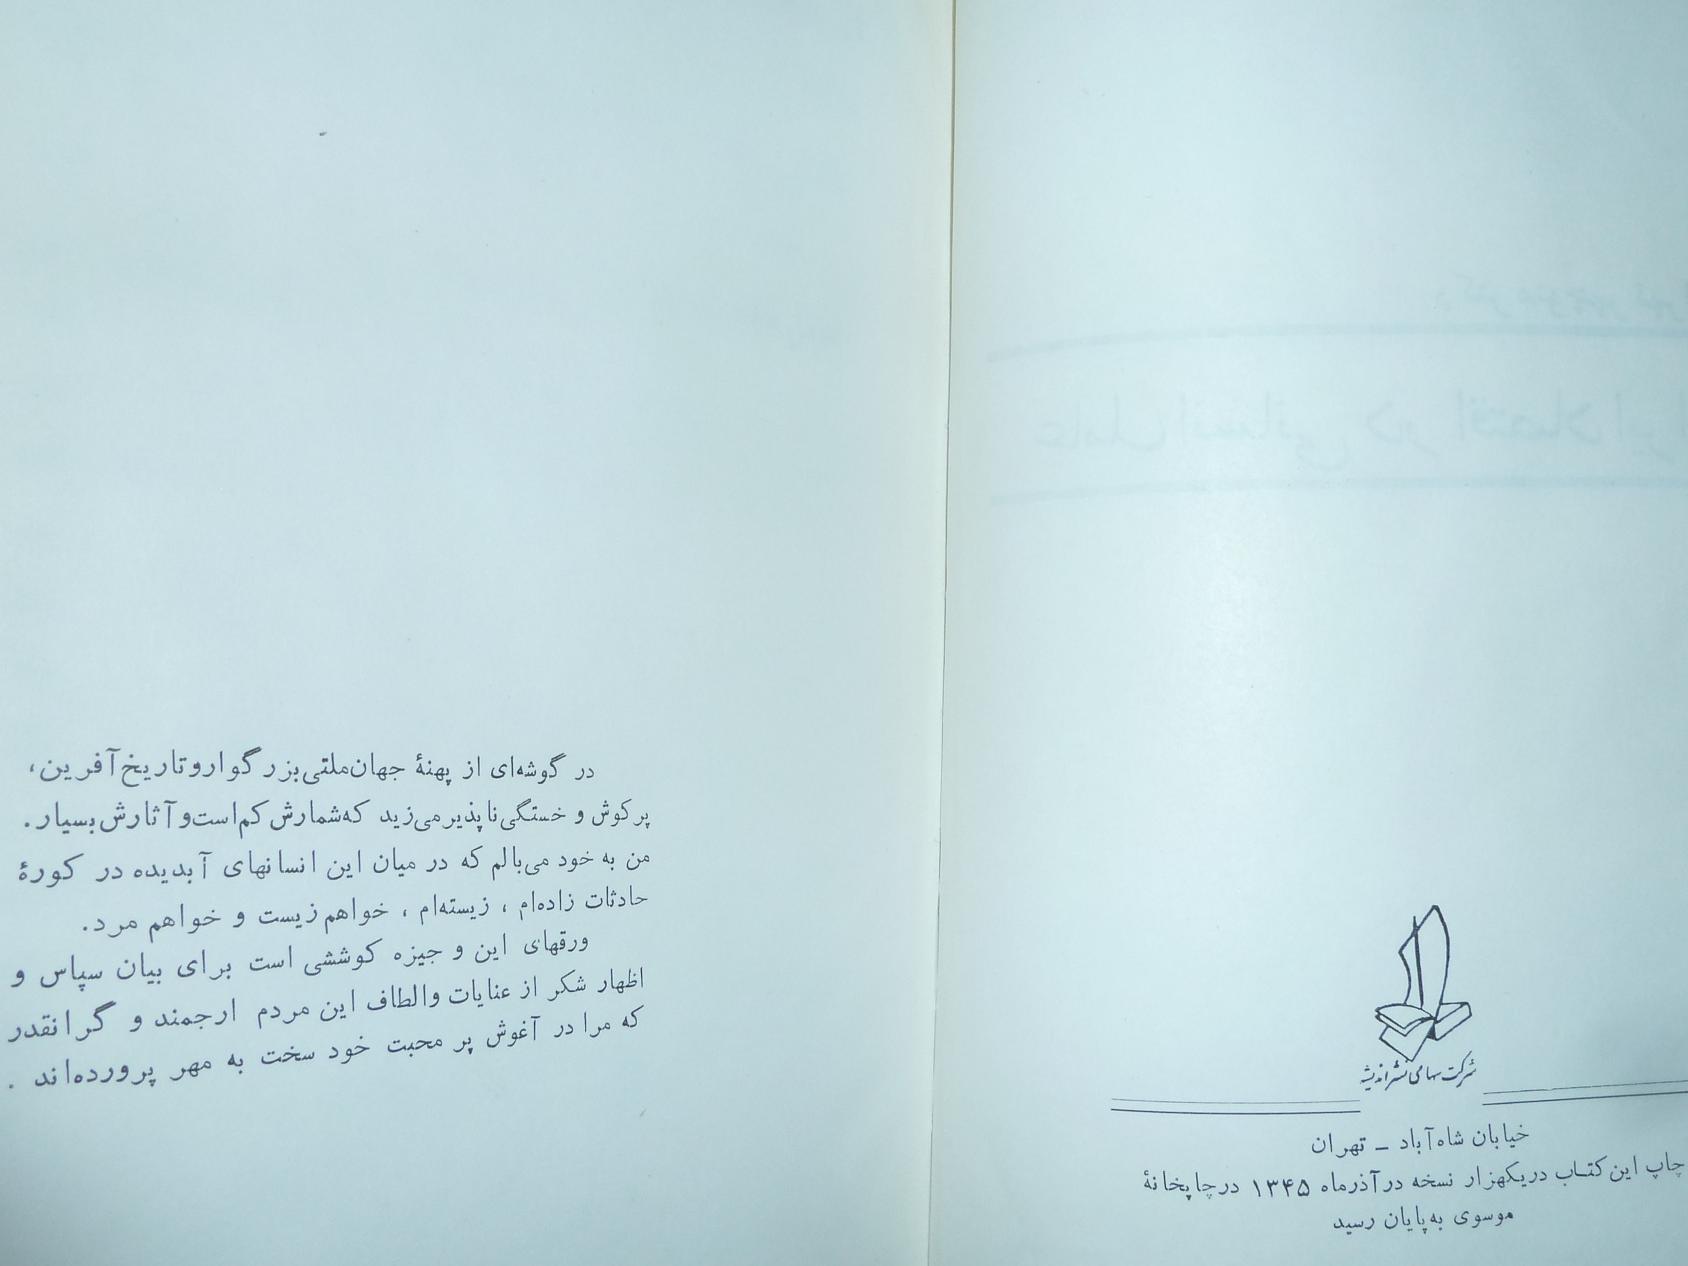 شرکت سهامی نشر اندیشه
خیابان شاه‌آباد ـ تهران
چاپ این کتاب در یکهزار نسخه در آذرماه ۱۳۴۵ در چاپخانهٔ
موسوی به‌پایان رسید
در گوشه‌ای از پهنهٔ جهان ملتی بزرگوار و تاریخ آفرین،
پر کوش و خستگی ناپذیر می‌زید که شمارش کم است و آثارش بسیار.
من به خود می‌بالم که در میان این انسانهای آبدیده در کورهٔ
حادثات زاده‌ام ، زیسته‌ام ، خواهم زیست و خواهم مرد.
ورقهای این و جیزه کوششی است برای بیان سپاس و
اظهار شکر از عنایات و الطاف این مردم ارجمند و گرانقدر
که مرا در آغوش پر محبت خود سخت به مهر پرورده‌اند .